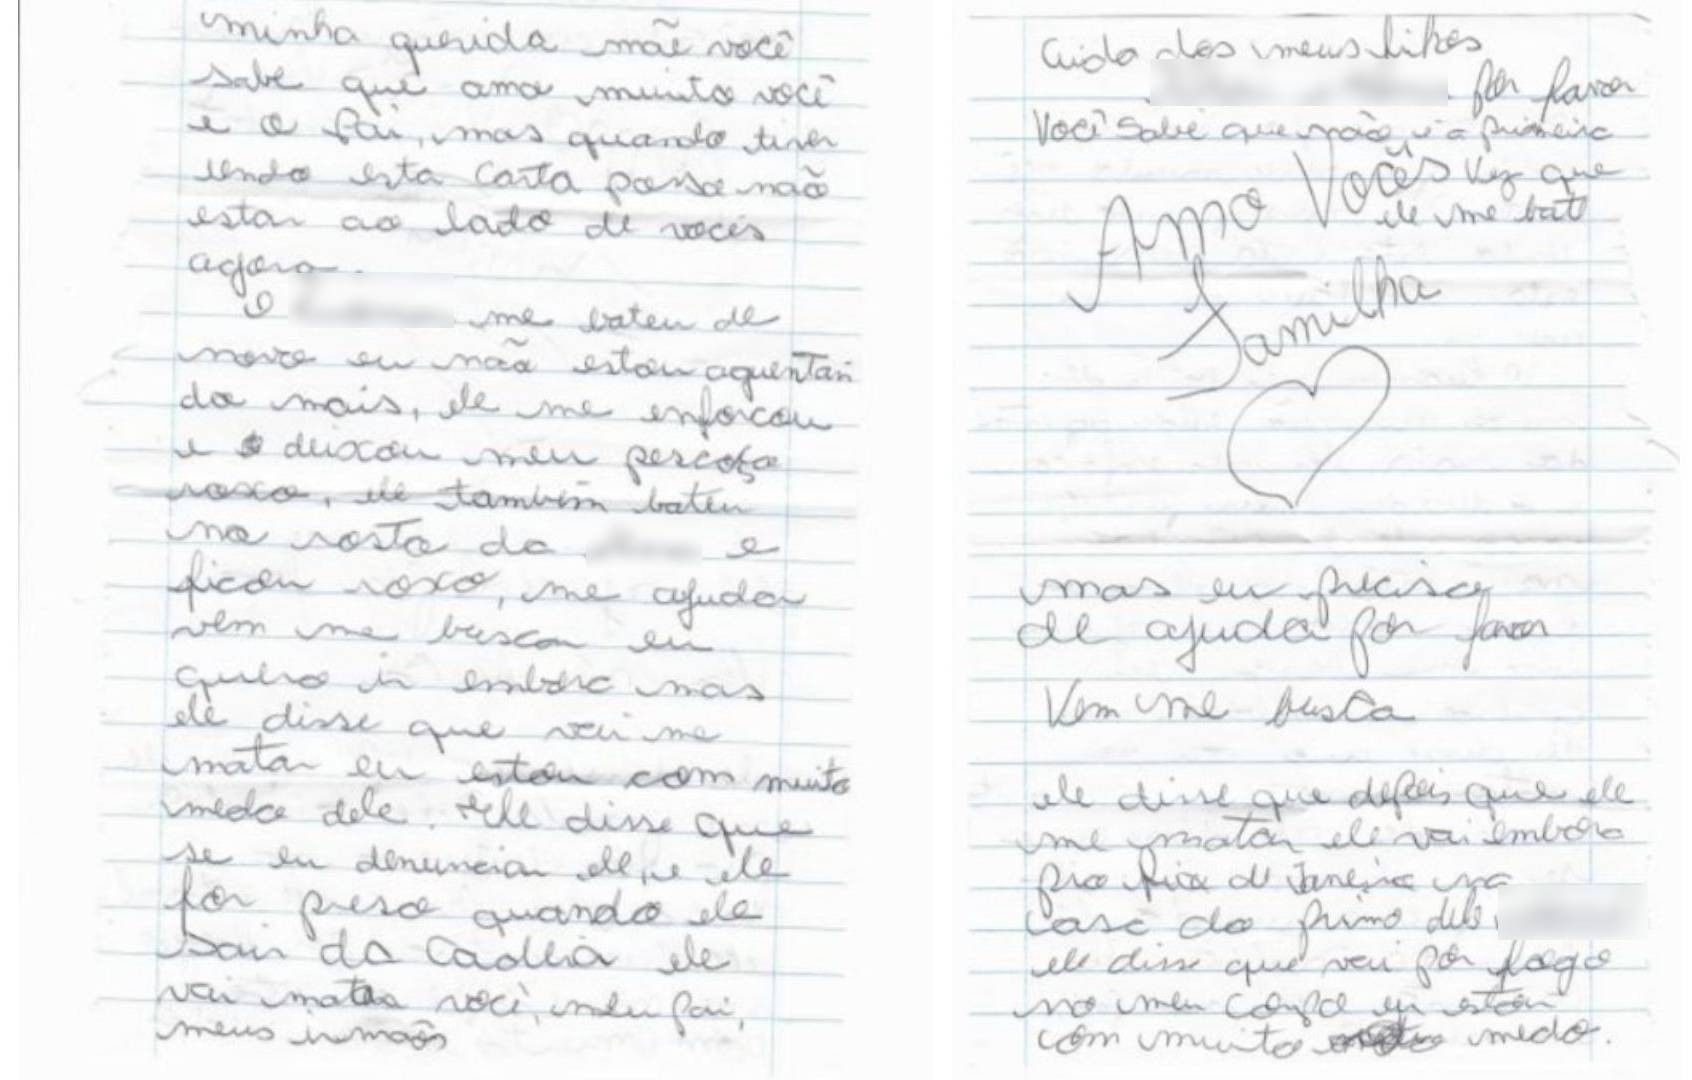 minha querida mãe você
sabe que amo muinto você
e o Pai, mas quando tiver
lendo esta carta posso não
estar ao lado de vocês
agora.
O me bateu de
novo eu não estou aguentan
do mais, ele me enforcou
e deixou meu pescoço
roxo, ele também bateu
no rosto da e
ficou roxo, me ajuda
vem me busca eu
quero ir embora mas
ele disse que vai me
matar eu estou com muito
medo dele. Ele disse que
se eu denuncia ele, e ele
for preso quando ele
sair da Cadeia ele
vai matar você, meu pai,
meus irmãos
Cuida dos meus filhos
por favor
Você Sabe que não é a primeira
vez que
ele me bate
Amo Vocês
Familha
mas eu preciso
de ajuda por favor
Vem me busca
ele disse que depois que ele
me matar ele vai embora
pro Rio de Janeiro na
casa do primo dele,
ele disse que vai por fogo
no meu corpo eu estou
com muito medo.